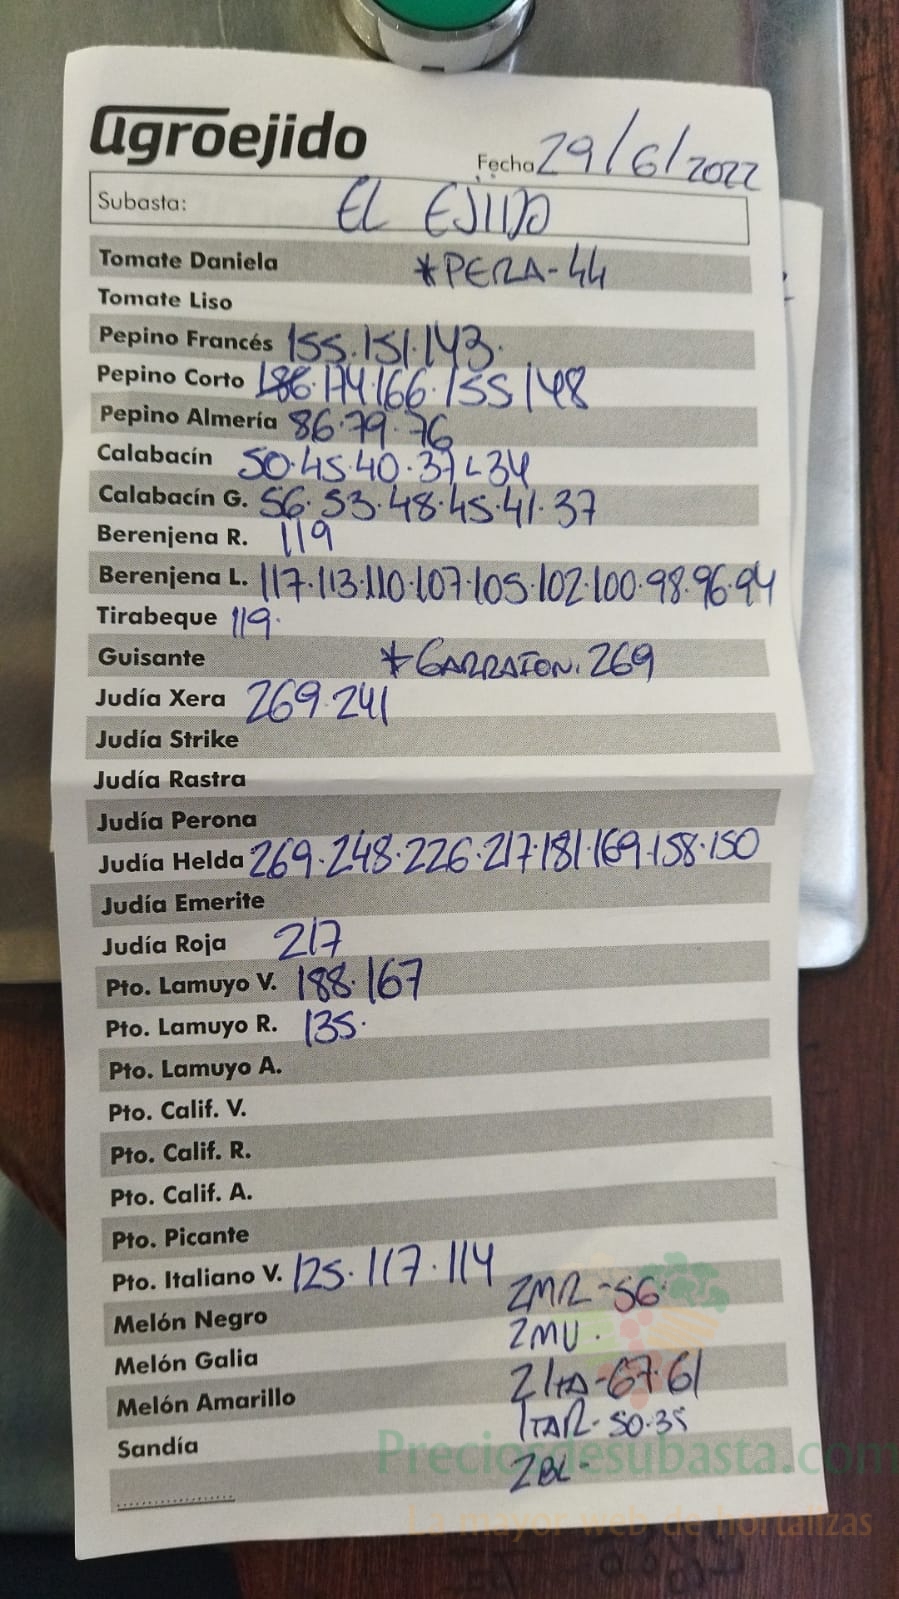 agroejido
Fecha 29/6/2022
Subasta: EL EJIDO
Tomate Daniela *PERA-44
Tomate Liso
Pepino Francés 155.151.143.
Pepino Corto 186.174.166.155.148
Pepino Almería 86.79.76
Calabacín 50.45.40.37.34
Calabacín G. 56.53.48.45.41.37
Berenjena R. 119
Berenjena L. 117.113.110.107.105.102.100.98.96.94
Tirabeque 119.
Guisante *GARRAFON.269
Judía Xera 269.241
Judía Strike
Judía Rastra
Judía Perona
Judía Helda 269.248.226.217.181.169.158.150
Judía Emerite
Judía Roja 217
Pto. Lamuyo V. 188.167
Pto. Lamuyo R. 135.
Pto. Lamuyo A.
Pto. Calif. V.
Pto. Calif. R.
Pto. Calif. A.
Pto. Picante
Pto. Italiano V. 125.117.114
Melón Negro 2MR-56
2MU.
Melón Galia
Melón Amarillo 67.61
Sandía 50.35
Preciosdesubasta.com
La mayor web de hortalizas